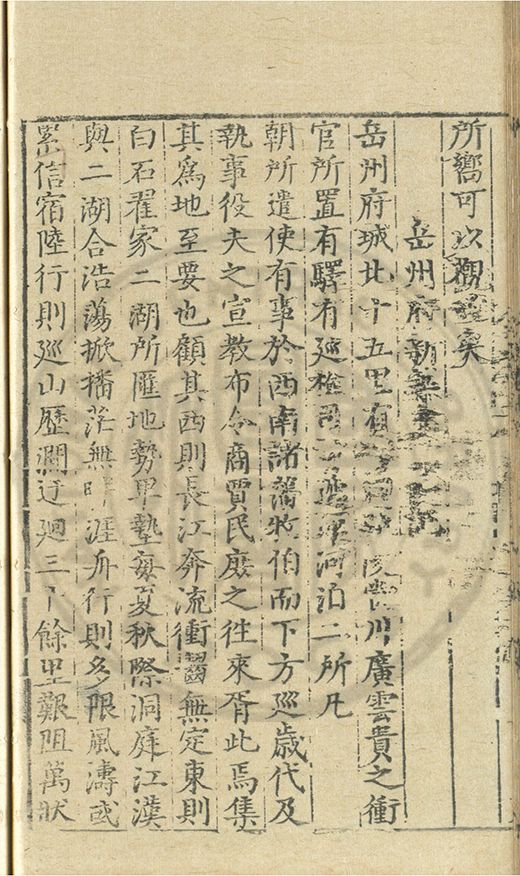 所嚮可以觀矣
岳州府
岳州府城北十五里有川廣雲貴之衝
官所置有驛有廵檢司河泊二所凡
朝所遣使有事於西南諸藩牧伯而下方廵歲代及
執事役夫之宣教布令商賈民廢之徃來胥此焉集
其爲地至要也顧其西則長江奔流衝齧無定東則
白石翟家二湖所匯地勢卑墊每夏秋際洞庭江漢
與二湖合浩蕩掀播茫無畔涯舟行則多限風濤或
累信宿陸行則廵山歷澗迂迴三十餘里艱阻萬狀